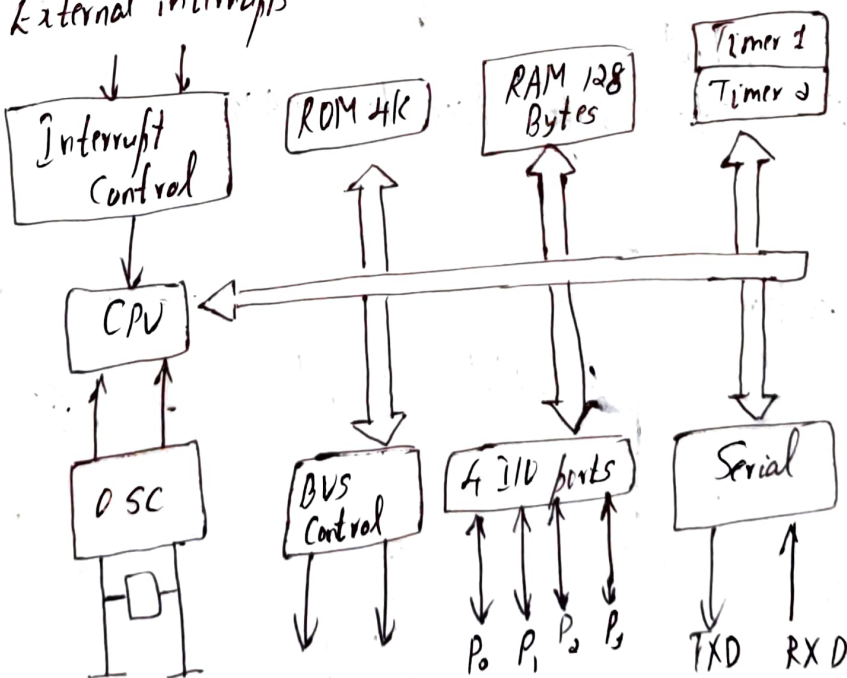 External interrupts
Interrupt
Control
ROM 4K
RAM 128
Bytes
Timer 1
Timer 2
CPU
OSC
BUS
Control
4 I/O ports
Serial
P0 P1 P2 P3
TXD RXD